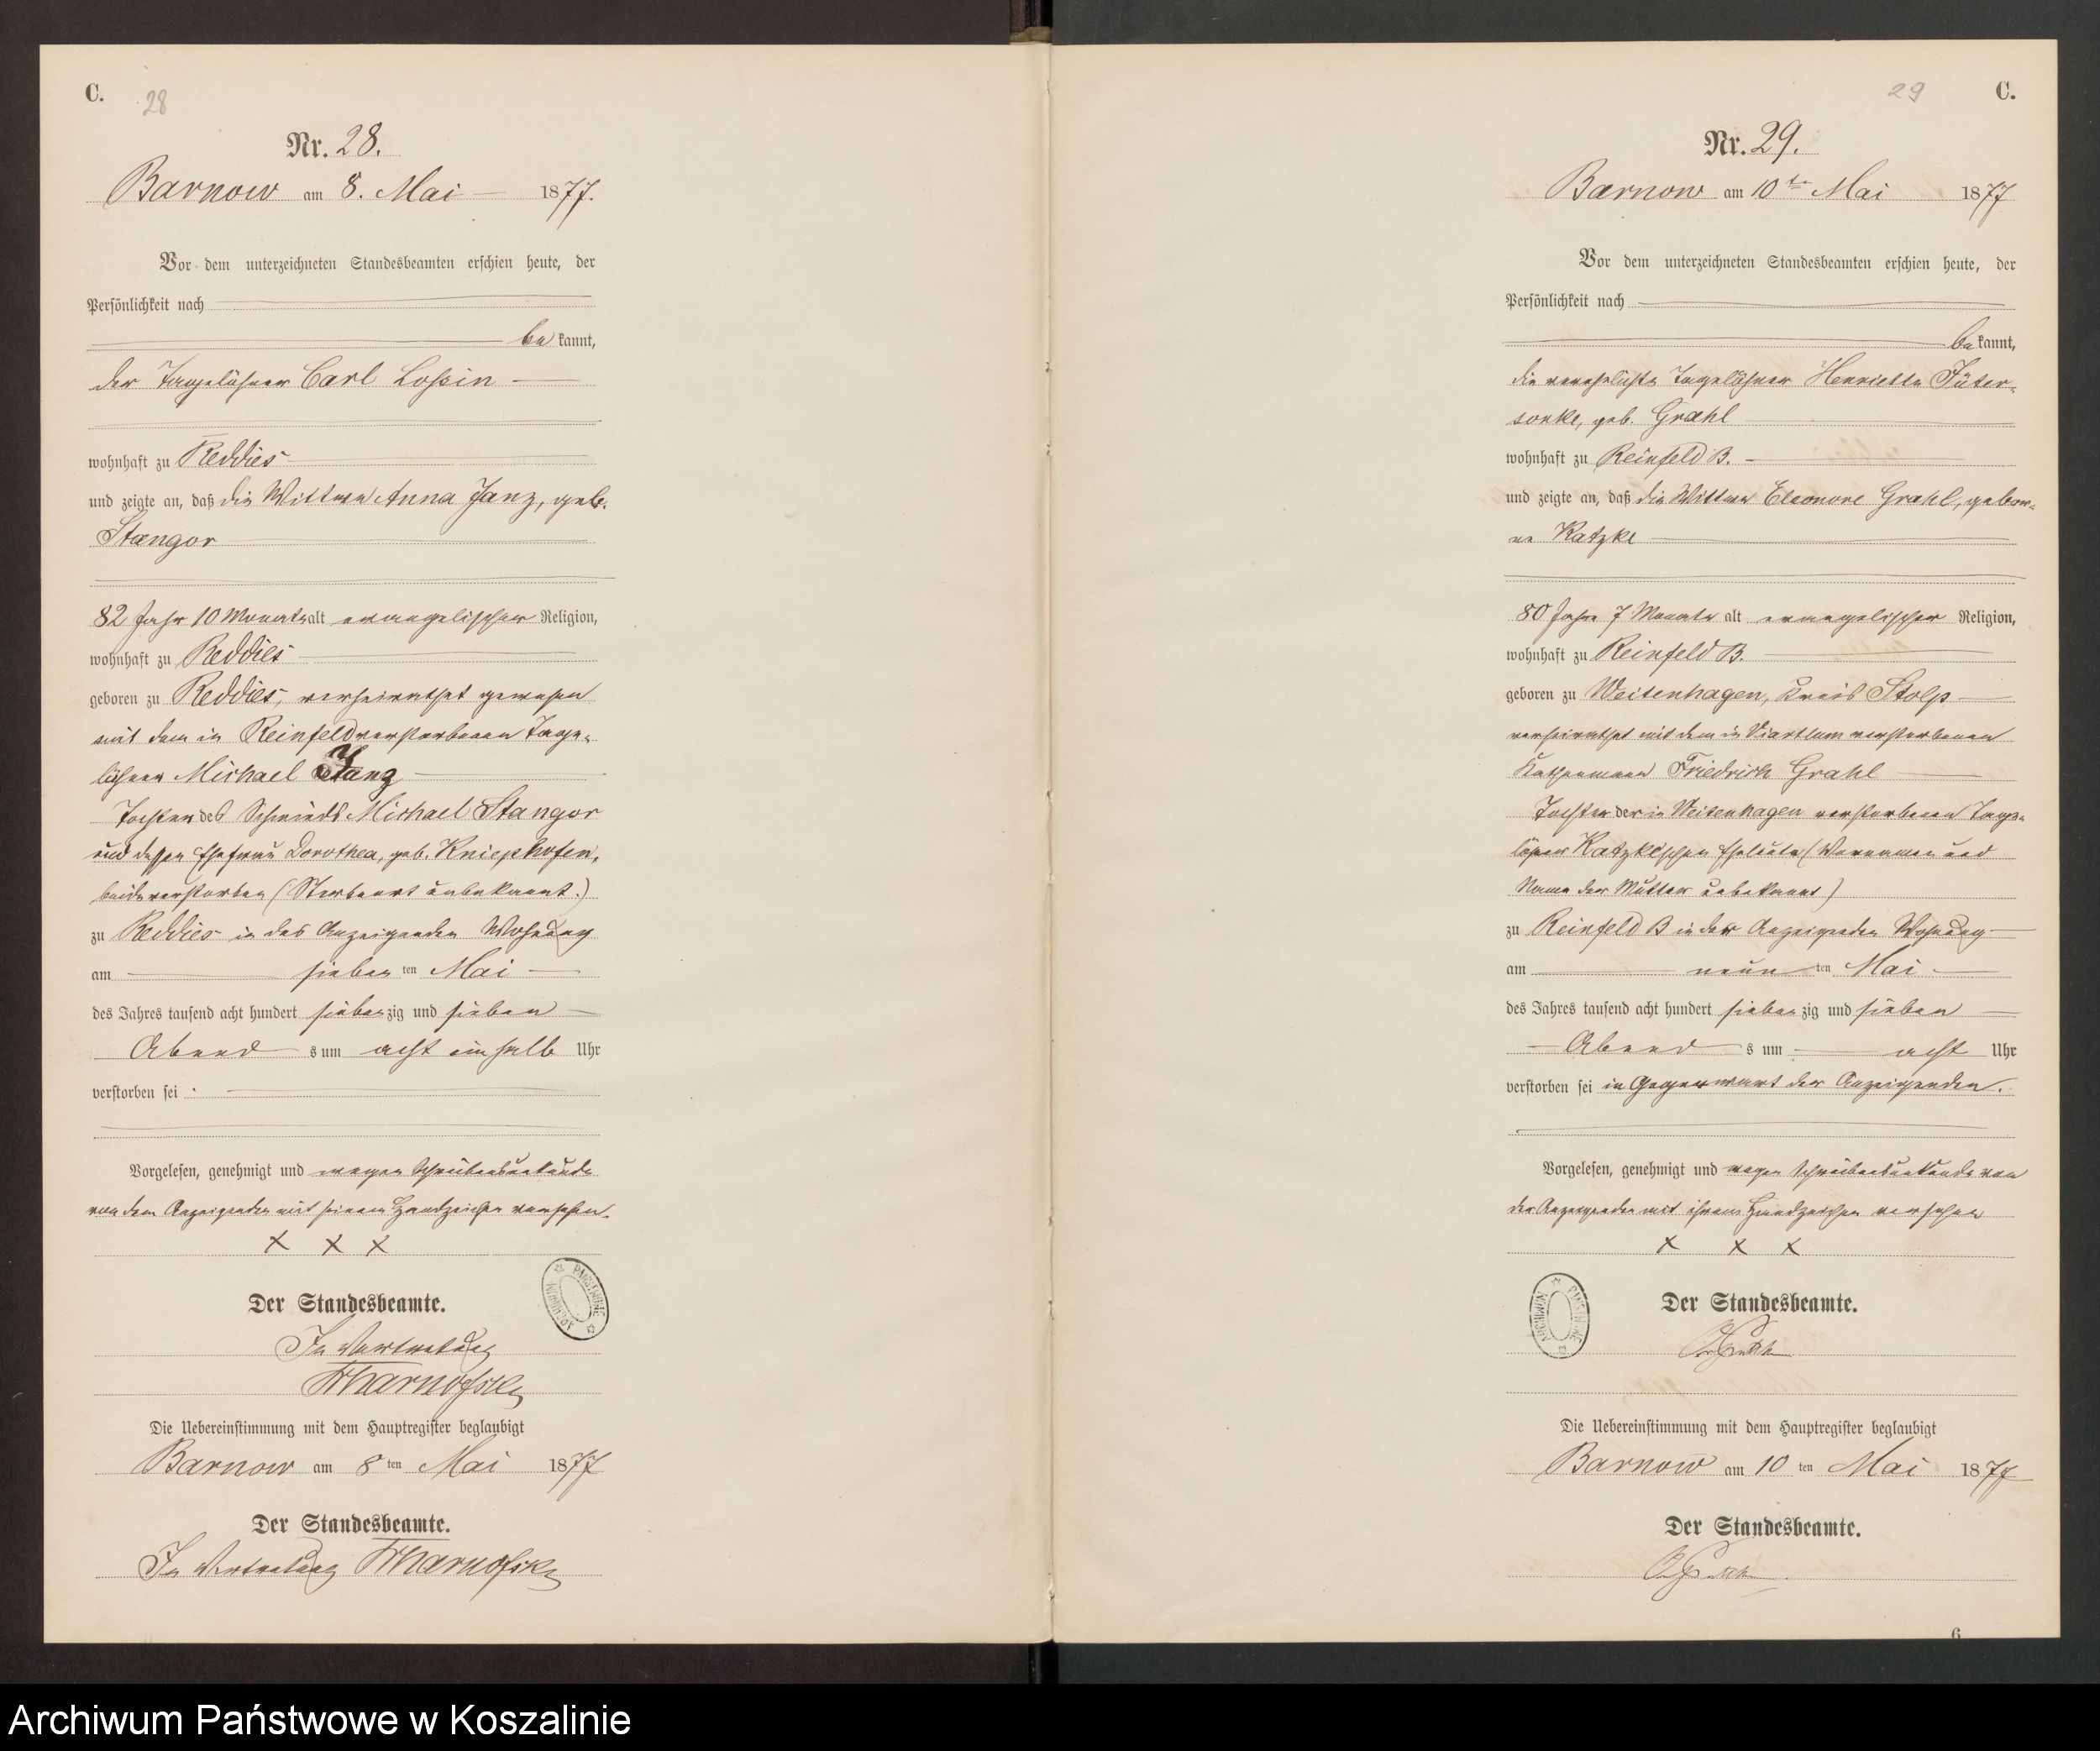 C.
28
Nr. 28.
Barnow am 8. Mai 1877.
Vor dem unterzeichneten Standesbeamten erschien heute, der
Persönlichkeit nach
bekannt,
der Tagelöhner Carl Lossin
wohnhaft zu Reddies
und zeigte an, daß die Wittwe Anna Janz, geb.
Stangor
82 Jahr 10 Monate alt evangelischer Religion,
wohnhaft zu Reddies
geboren zu Reddies, verheirathet gewesen
mit dem in Reinfeld verstorbenen Tage-
löhner Michael Janz
Tochter des Schmieds Michael Stangor
und dessen Ehefrau Dorothea, geb. Kniephofen,
beide verstorben (Sterbeort unbekannt.)
zu Reddies in des Anzeigenden Wohnung
am sieben ten Mai
des Jahres tausend acht hundert siebenzig und sieben
Abends um acht ein halb Uhr
verstorben sei
Vorgelesen, genehmigt und wegen Schreibensunkunde
von dem Anzeigenden mit seinem Handzeichen versehen.
X X X
Der Standesbeamte.
In Vertretung
Die Uebereinstimmung mit dem Hauptregister beglaubigt
Barnow am 8 ten Mai 1877
Der Standesbeamte.
In Vertretung
ARCHIWUM PAŃSTWOWE
29 C.
Nr. 29.
Barnow am 10ten Mai 1877
Vor dem unterzeichneten Standesbeamten erschien heute, der
Persönlichkeit nach
bekannt,
die verehelichte Tagelöhner Henriette Füter-
sonke, geb. Grahl
wohnhaft zu Reinfeld B.
und zeigte an, daß die Wittwe Eleonore Grahl, gebor-
ne Katzke
80 Jahre 7 Monate alt evangelischer Religion,
wohnhaft zu Reinfeld B.
geboren zu Weitenhagen, Kreis Stolp
verheirathet mit dem in Viartlum verstorbenen
Kathenmann Friedrich Grahl
Tochter der in Weitenhagen verstorbenen Tage-
löhner Katzkeschen Eheleute (Vornamen und
Name der Mutter unbekannt)
zu Reinfeld B in der Anzeigenden Wohnung
am neun ten Mai
des Jahres tausend acht hundert siebenzig und sieben
Abends um acht Uhr
verstorben sei in Gegenwart der Anzeigenden.
Vorgelesen, genehmigt und wegen Schreibensunkunde von
der Anzeigenden mit ihrem Handzeichen versehen
X X X
Der Standesbeamte.
Die Uebereinstimmung mit dem Hauptregister beglaubigt
Barnow am 10 ten Mai 1877
Der Standesbeamte.
ARCHIWUM PAŃSTWOWE
6
Archiwum Państwowe w Koszalinie